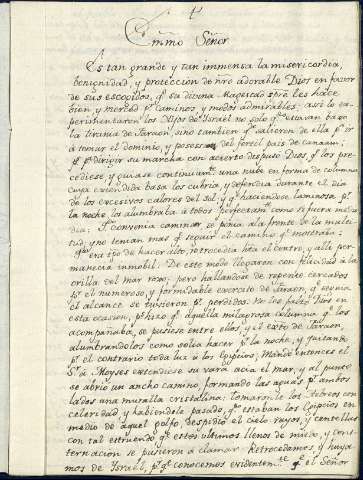 Emmo Señor
Es tan grande y tan immensa la misericordia
benignidad, y protección de nro adorable Dios en favor
de sus escogidos, q.e su divina Magestad spre les hace
bien, y merced p.r caminos, y modos admirables: assi lo ex-
perimentaron los Hijos de Israel no solo q.do estavan baxo
la tirania de Faraon, sino tambien q.do salieron de ella p.a ir
à tomar el dominio, y posesion del feréz pais de Canaam;
p.s p.a dirigir su marcha con acierto dispuso Dios q.e los pre-
cediese y guiase continuam.te una nube en forma de columna
cuya extendida basa los cubria, y defendia durante el dia
de los excesivos calores del Sol; y q.e haciendose luminosa p.r
la noche los alumbraba à todos perfectam.te como si fuera medio
dia: Si convenia caminar se ponia à la frente de la multi-
tud, y no tenian mas q.e seguir el camino q.e mostraba:
q.do era tpo de hacer alto, retrocedia hta el centro, y alli per-
manecia inmobil: De este modo llegaron con felicidad à la
orilla del mar roxo, pero hallandose de repente cercados
p.r el numeroso, y formidable exercito de Faraon, q.e seguia
el alcance se tuvieron p.r perdidos. No les faltó Dios en
esta ocasion, p.s hizo q.e aquella milagrosa columna q.e los
acompañaba, se pusiese entre ellos, y el exto de Faraon,
alumbrandolos como solia hacer p.r la noche, y quitando
p.r el contrario toda luz à los Egipcios; Mandó entonces el
S.r à Moyses extendiese su vara àcia el mar, y al punto
se abrió un ancho camino, formando las aguas p.r ambos
lados una muralla cristalina: tomaronle los Hebreos con
celeridad, y habiendole pasado, q.do estaban los Egipcios en
medio de aquel golfo, despidió el cielo rayos, y centellas
con tal estruendo q.e estos ultimos llenos de miedo, y cons-
ternacion se pusieron à clamar: Retrocedamos, y huya-
mos de Israel, p.s q.e conocemos evidentem.te q.e el Señor